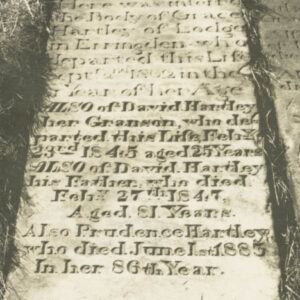 Here was inter
the Body of Grace
Hartley of Lodge
in Erringden who
departed this Life
Year of her Age
ALSO of David Hartley
her Granson, who de
parted this Life Feby
23rd 1845 aged 25 Years
ALSO of David Hartley
his Father, who died
Feby 27th 1847.
Aged 81 Years.
Also Prudence Hartley
who died June 1st 1885
In her 86th Year.